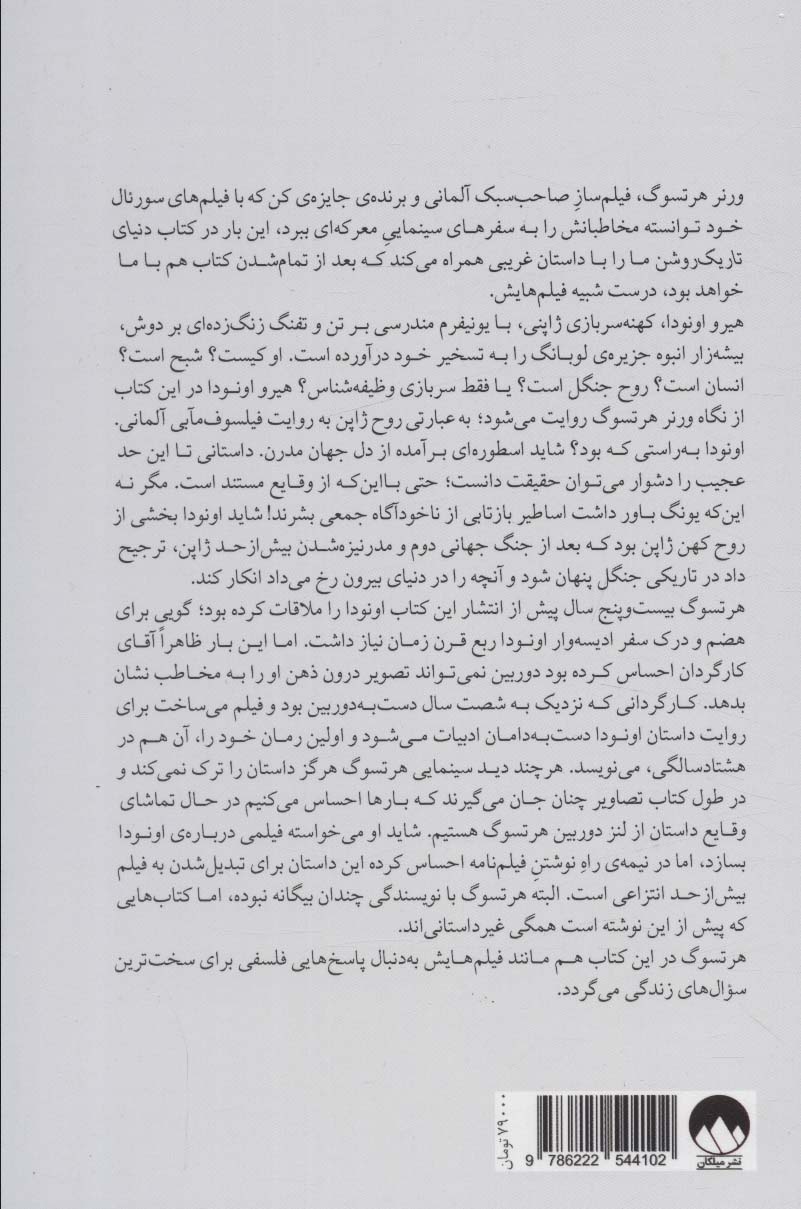 ورنر هرتسوگ، فیلم‌سازِ صاحب‌سبک آلمانی و برنده‌ی جایزه‌ی کن که با فیلم‌های سورئال
خود توانسته مخاطبانش را به سفرهای سینماییِ معرکه‌ای ببرد، این بار در کتاب دنیای
تاریک‌روشن ما را با داستان غریبی همراه می‌کند که بعد از تمام‌شدن کتاب هم با ما
خواهد بود، درست شبیه فیلم‌هایش.
هیرو اونودا، کهنه‌سربازی ژاپنی، با یونیفرم مندرسی بر تن و تفنگ زنگ‌زده‌ای بر دوش،
بیشه‌زار انبوه جزیره‌ی لوبانگ را به تسخیر خود درآورده است. او کیست؟ شبح است؟
انسان است؟ روح جنگل است؟ یا فقط سربازی وظیفه‌شناس؟ هیرو اونودا در این کتاب
از نگاه ورنر هرتسوگ روایت می‌شود؛ به‌عبارتی روح ژاپن به روایت فیلسوف‌مآبی آلمانی.
اونودا به‌راستی که بود؟ شاید اسطوره‌ای برآمده از دل جهان مدرن. داستانی تا این حد
عجیب را دشوار می‌توان حقیقت دانست؛ حتی با‌این‌که از وقایع مستند است. مگر نه
این‌که یونگ باور داشت اساطیر بازتابی از ناخودآگاه جمعی بشرند! شاید اونودا بخشی از
روح کهن ژاپن بود که بعد از جنگ جهانی دوم و مدرنیزه‌شدن بیش‌ازحد ژاپن، ترجیح
داد در تاریکی جنگل پنهان شود و آنچه را در دنیای بیرون رخ می‌داد انکار کند.
هرتسوگ بیست‌وپنج سال پیش از انتشار این کتاب اونودا را ملاقات کرده بود؛ گویی برای
هضم و درک سفر ادیسه‌وار اونودا ربع قرن زمان نیاز داشت. اما این بار ظاهراً آقای
کارگردان احساس کرده بود دوربین نمی‌تواند تصویر درون ذهن او را به مخاطب نشان
بدهد. کارگردانی که نزدیک به شصت سال دست‌به‌دوربین بود و فیلم می‌ساخت برای
روایت داستان اونودا دست‌به‌دامان ادبیات می‌شود و اولین رمان خود را، آن هم در
هشتادسالگی، می‌نویسد. هرچند دید سینمایی هرتسوگ هرگز داستان را ترک نمی‌کند و
در طول کتاب تصاویر چنان جان می‌گیرند که بارها احساس می‌کنیم در حال تماشای
وقایع داستان از لنز دوربین هرتسوگ هستیم. شاید او می‌خواسته فیلمی درباره‌ی اونودا
بسازد، اما در نیمه‌ی راهِ نوشتنِ فیلم‌نامه احساس کرده این داستان برای تبدیل‌شدن به فیلم
بیش‌ازحد انتزاعی است. البته هرتسوگ با نویسندگی چندان بیگانه نبوده، اما کتاب‌هایی
که پیش از این نوشته است همگی غیرداستانی‌اند.
هرتسوگ در این کتاب هم مانند فیلم‌هایش به‌دنبال پاسخ‌هایی فلسفی برای سخت‌ترین
سؤال‌های زندگی می‌گردد.
۷۹۰۰۰ تومان
9 786222 544102
نشر میلکان